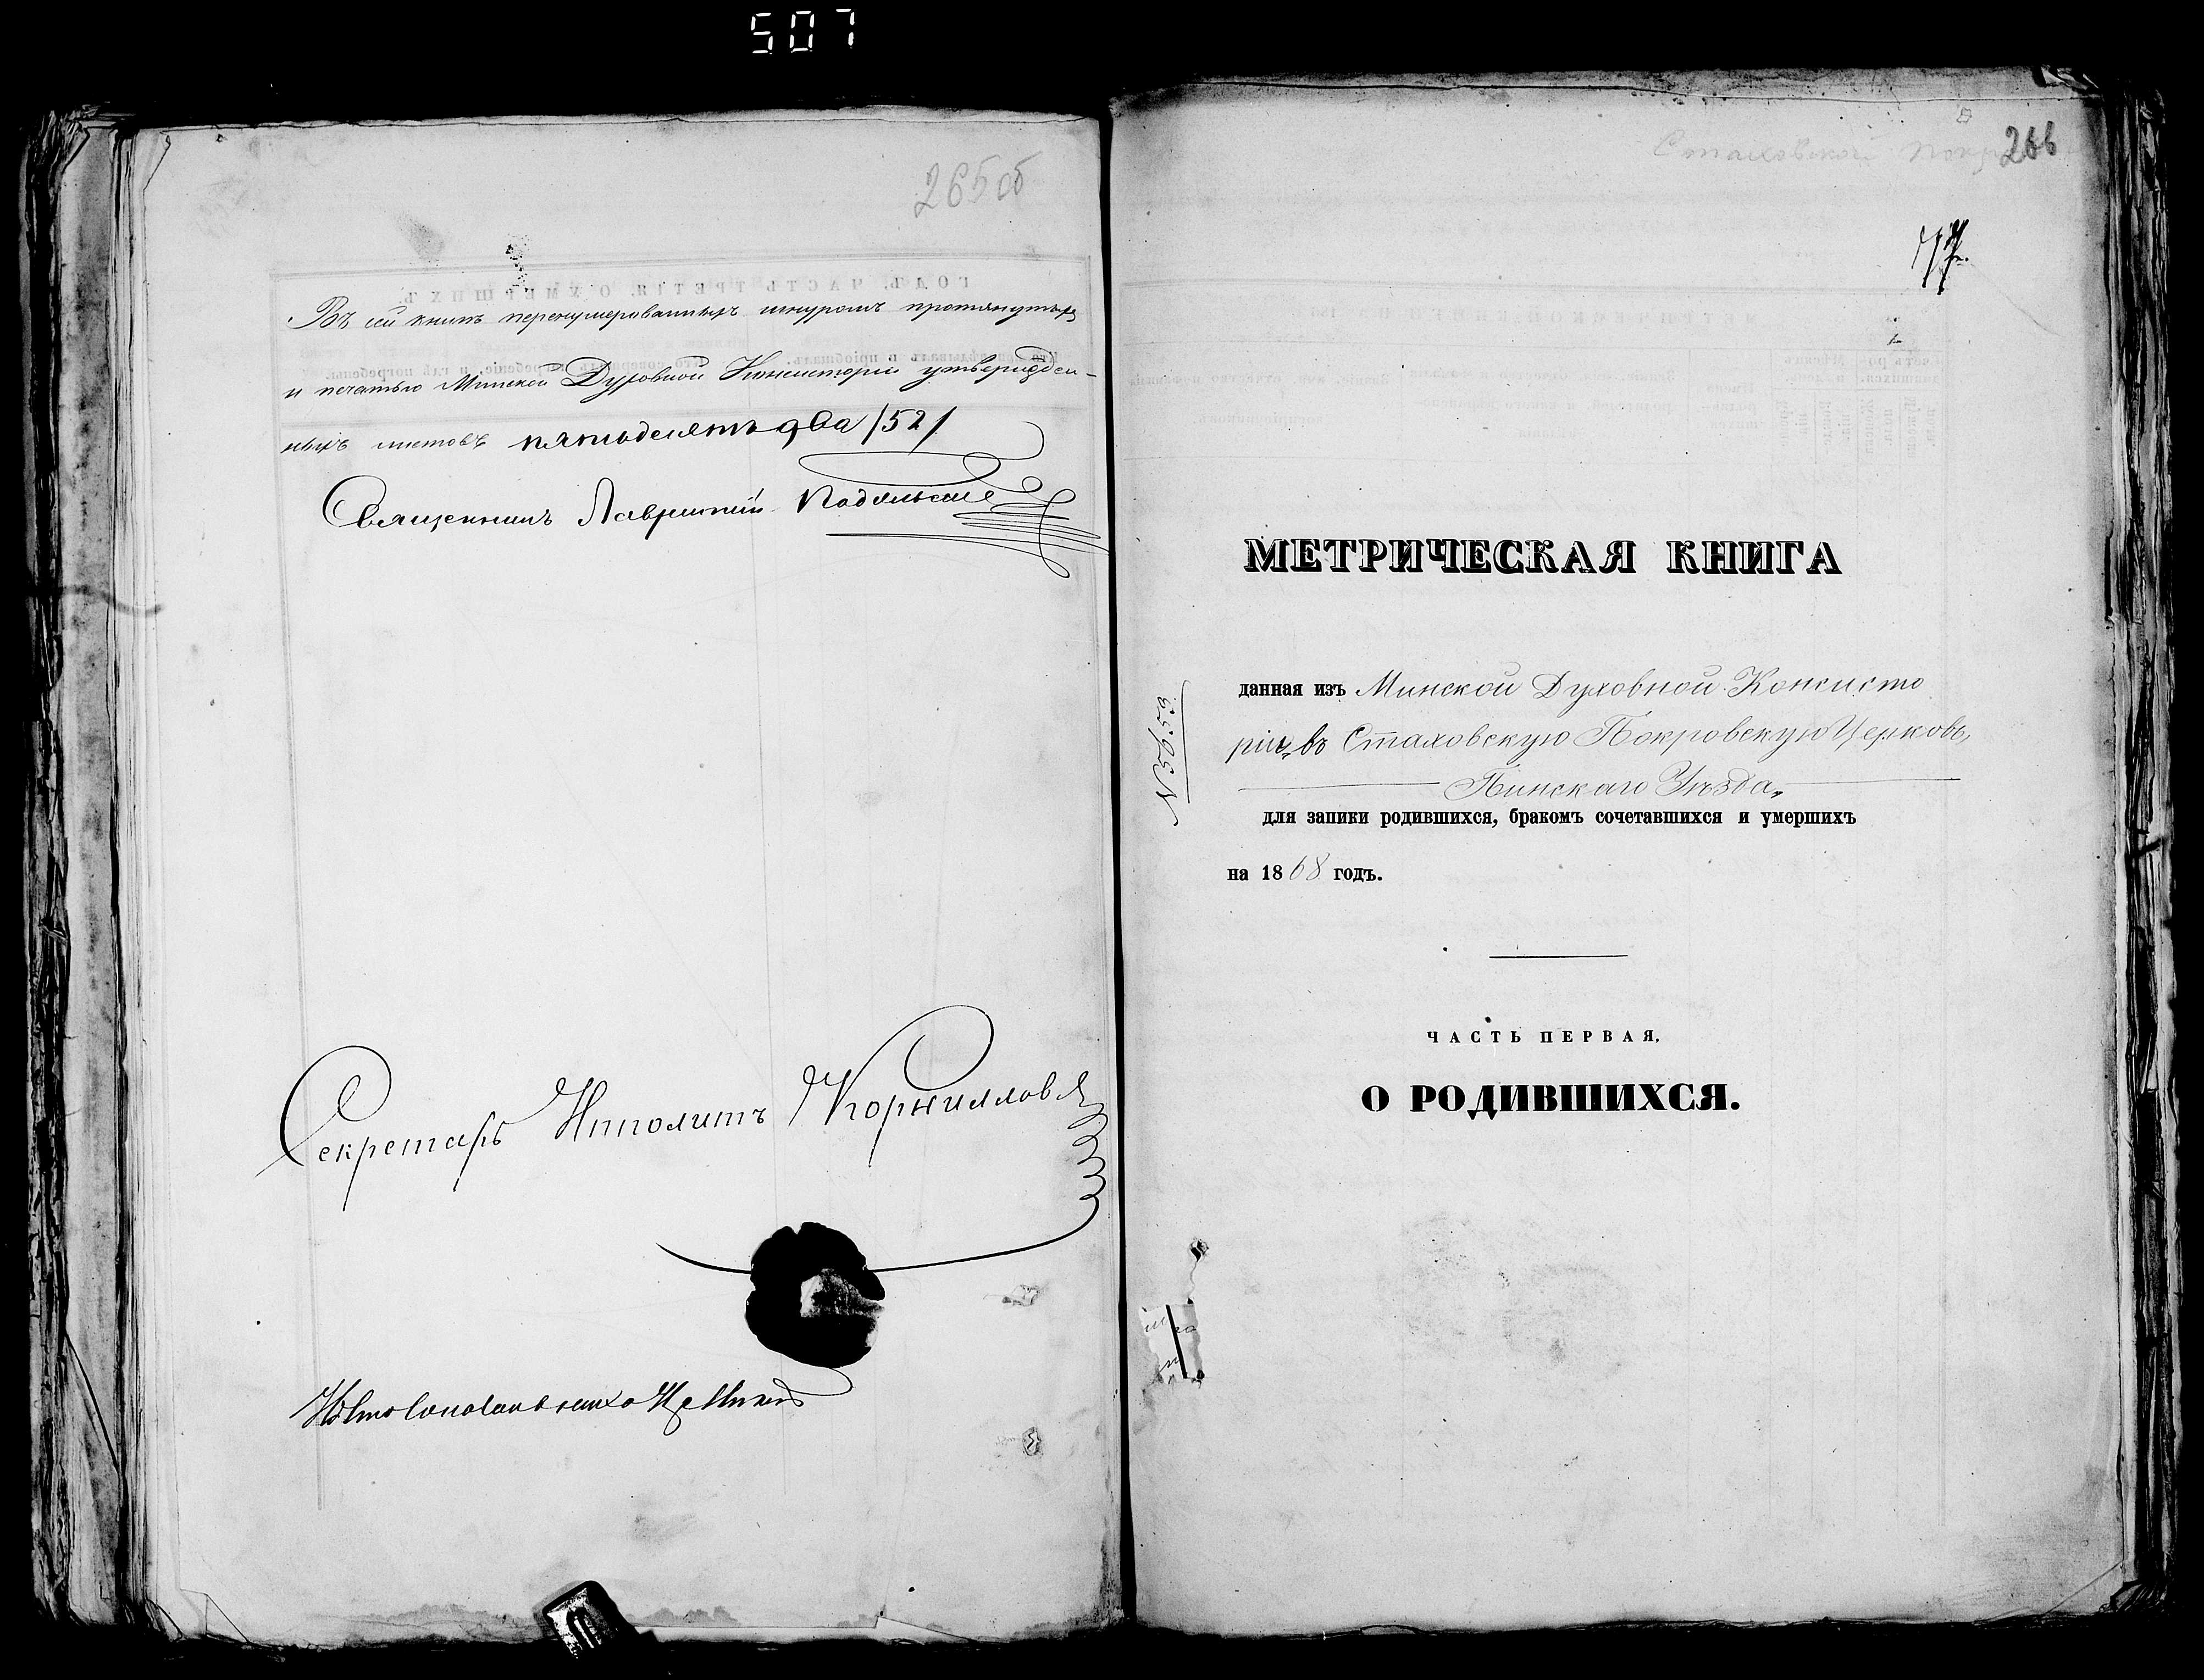 507
265 об
Въ сей книгѣ перенумерованныхъ шнуромъ протянутыхъ
и печатью Минской Духовной Консисторіи утвержден-
ныхъ листовъ пятьдесятъ два /52/
Священникъ Лаврентій
Секретарь Ипполитъ Корнилловъ
266
Стаховской Покр
МЕТРИЧЕСКАЯ КНИГА
данная изъ Минской Духовной Консисто
ріи въ Стаховскую Покровскую Церковь,
Пинскаго Уѣзда,
для запики родившихся, бракомъ сочетавшихся и умершихъ
на 1868 годъ.
ЧАСТЬ ПЕРВАЯ,
О РОДИВШИХСЯ.